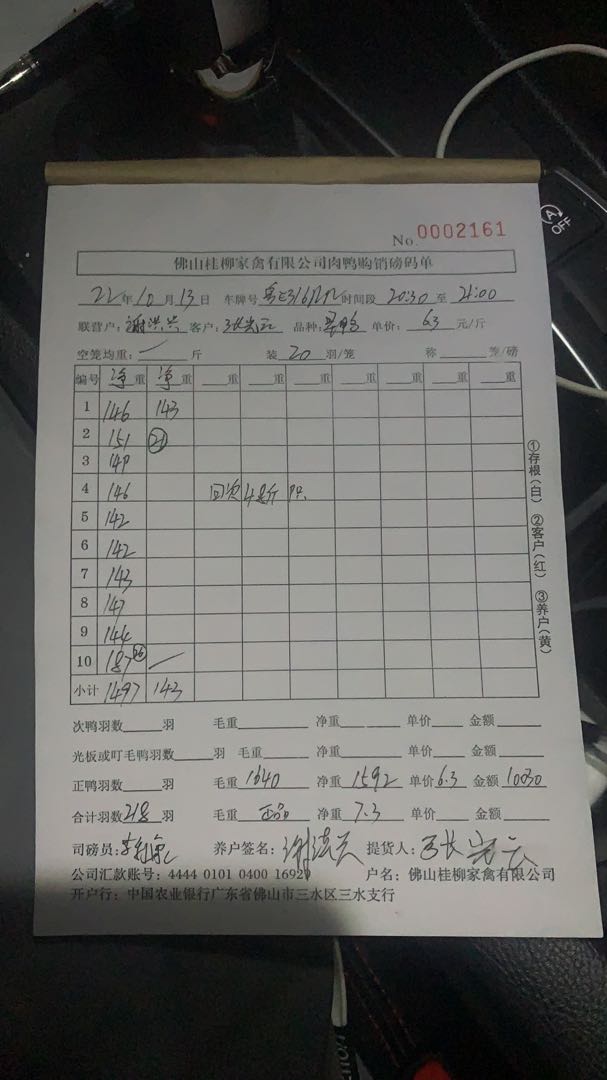 No. 0002161
佛山桂柳家禽有限公司肉鸭购销磅码单
22年10月13日 车牌号 时间段 20:30 至 21:00
联营户: 谢洪兴 客户: 张光云 品种: 单价: 6.3 元/斤
空笼均重: 一 斤 装 20 羽/笼 称 笼/磅
编号 净重 净重 重 重 重 重 重 重 重
1 146 143
2 151 21
3 149
4 146 回 4 斤
5 142
6 142
7 143
8 147
9 144
10 187
小计 1497 143
①存根(白) ②客户(红) ③养户(黄)
次鸭羽数 羽 毛重 净重 单价 金额
光板或叮毛鸭羽数 羽 毛重 净重 单价 金额
正鸭羽数 羽 毛重 1640 净重 1592 单价 6.3 金额 10030
合计羽数 218 羽 毛重 正品 净重 7.3 单价 金额
司磅员: 养户签名: 谢洪兴 提货人: 张光云
公司汇款账号: 4444 0101 0400 16929 户名: 佛山桂柳家禽有限公司
开户行: 中国农业银行广东省佛山市三水区三水支行
A
OFF